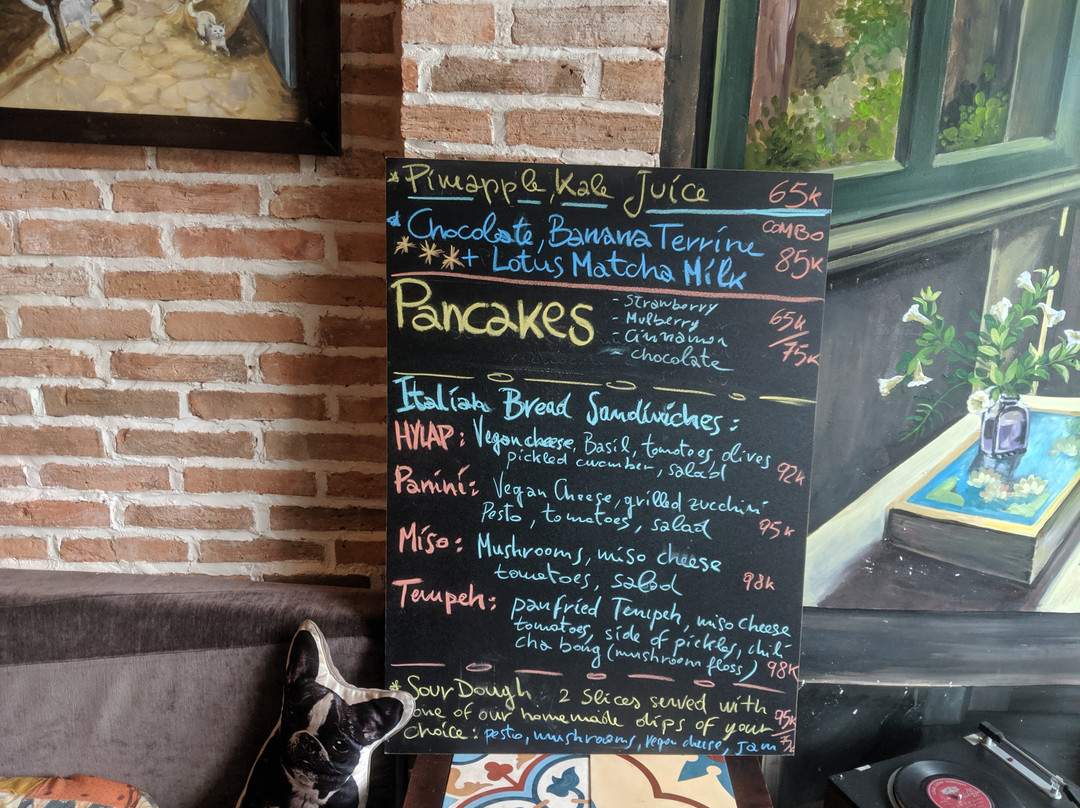 * Pineapple, Kale Juice 65k
* Chocolate, Banana Terrine COMBO
*** + Lotus Matcha Milk 85k
Pancakes
- Strawberry
- Mulberry 65k
- Cinnamon
- chocolate 75k
Italian Bread Sandwiches:
HYLAP: Vegan cheese, Basil, tomatoes, olives
pickled cucumber, salad 92k
Panini: Vegan Cheese, grilled zucchini
Pesto, tomatoes, salad 95k
Miso: Mushrooms, miso cheese
tomatoes, salad 98k
Tempeh: panfried Tempeh, miso cheese
tomatoes, side of pickles, chili
cha bong (mushroom floss) 98k
* Sour Dough 2 Slices served with
one of our homemade dips of your
choice: pesto, mushrooms, vegan cheese, Jam